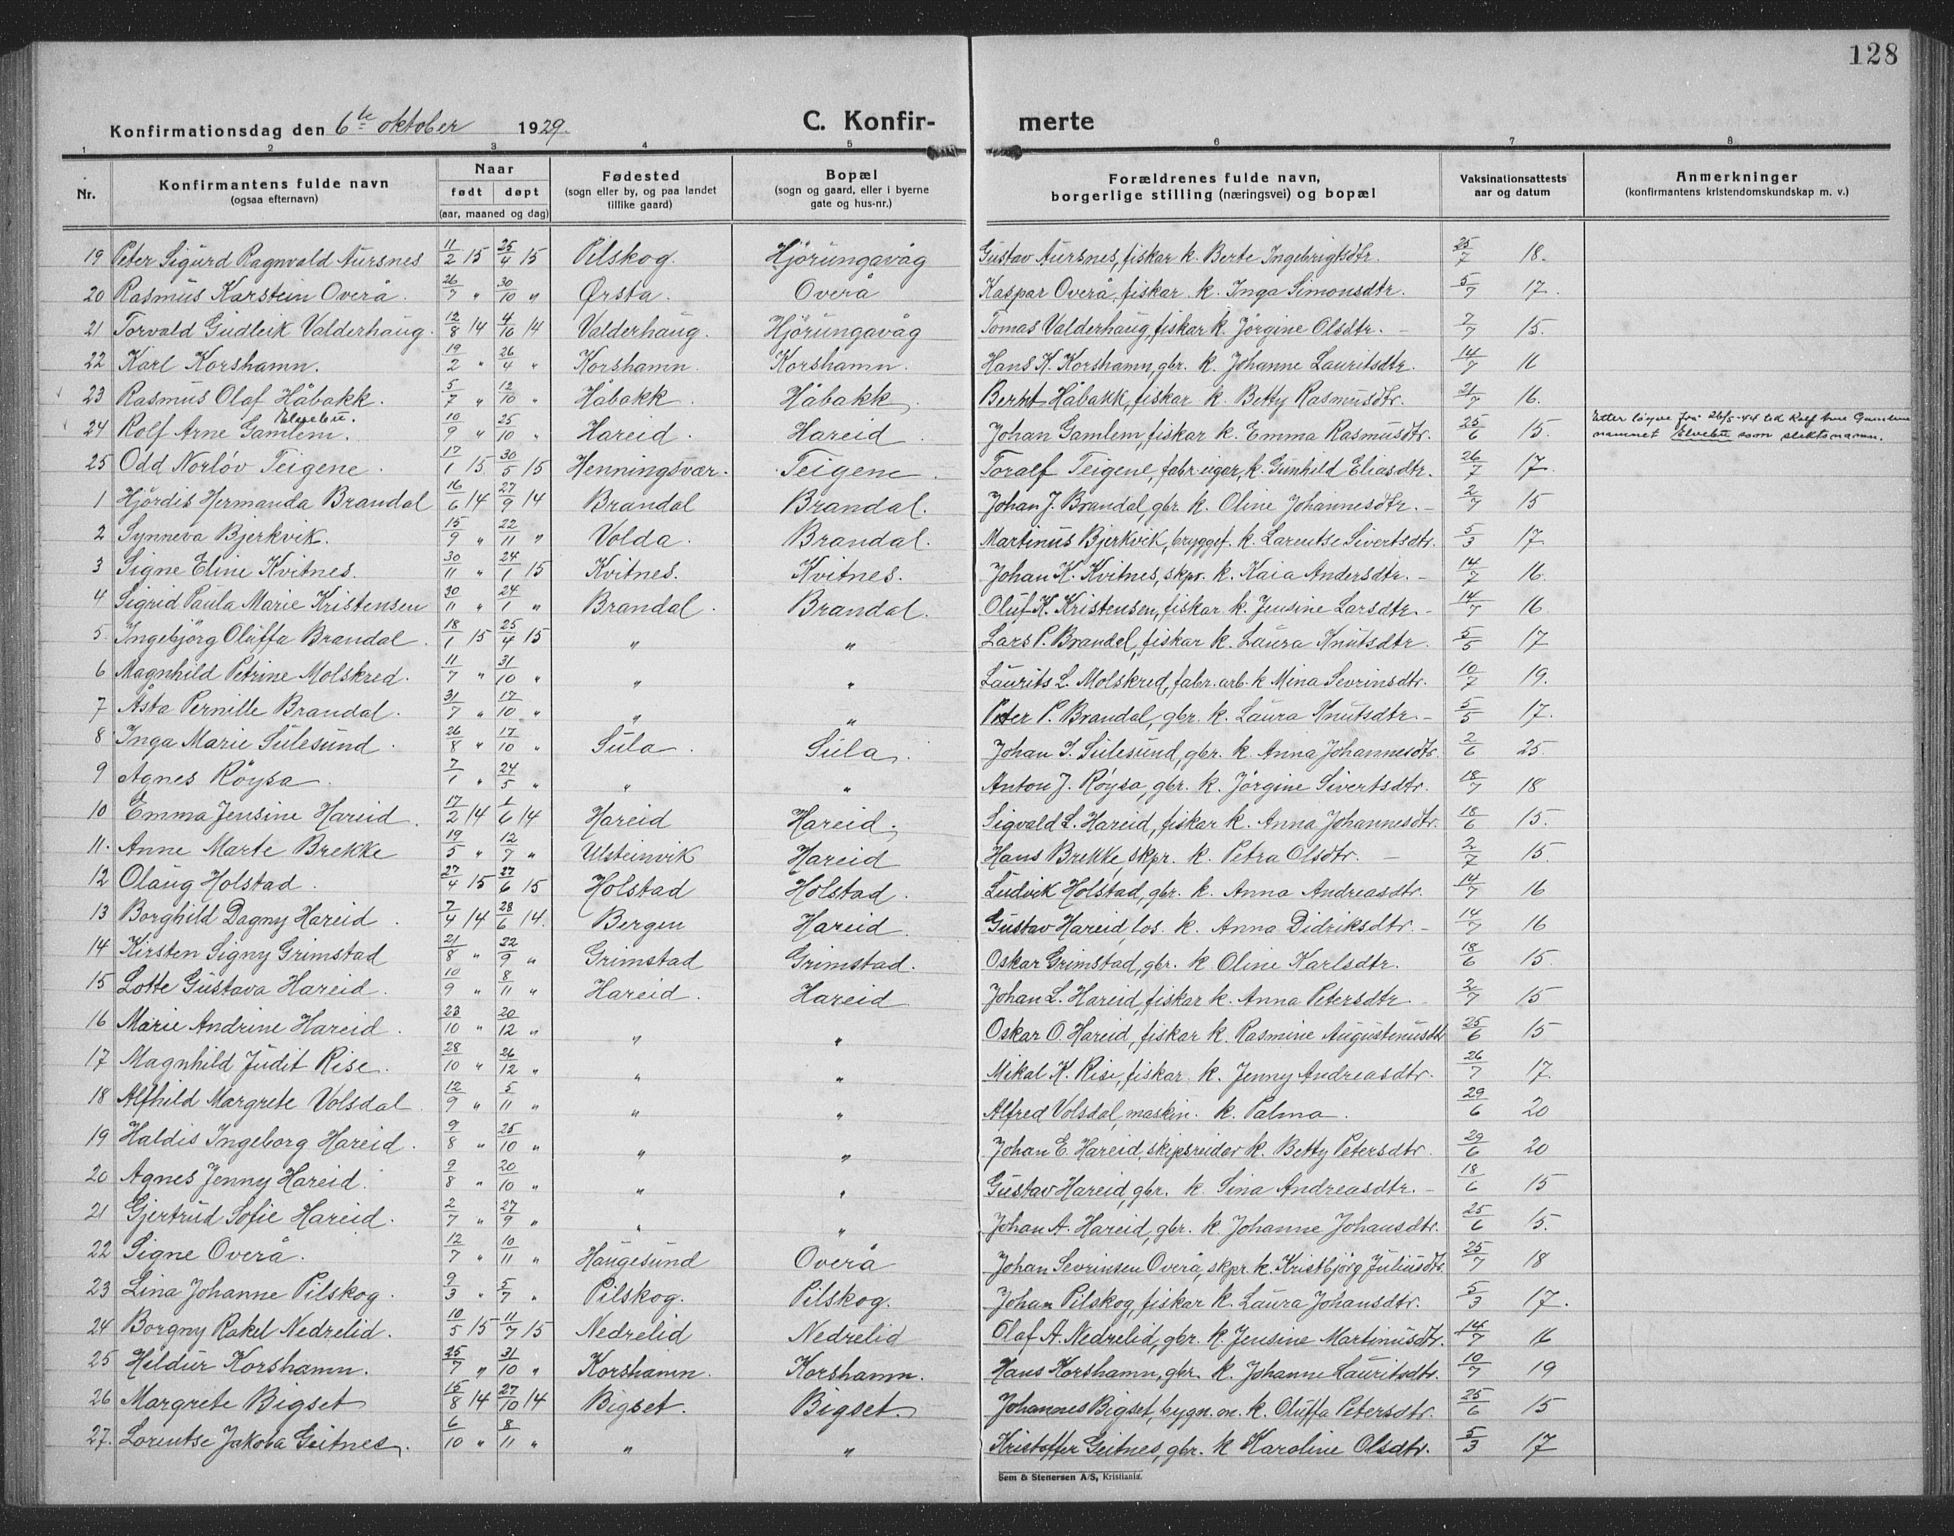 128
Konfirmationsdag den 6te oktober 1929. C. Konfir- merte
1 2 3 4 5 6 7 8
Nr. Konfirmantens fulde navn (ogsaa efternavn) Naar født døpt (aar, maaned og dag) Fødested (sogn eller by, og paa landet tillike gaard) Bopæl (sogn og gaard, eller i byerne gate og hus-nr.) Forældrenes fulde navn, borgerlige stilling (næringsvei) og bopæl Vaksinationsattests aar og datum Anmerkninger (konfirmantens kristendomskundskap m. v.)
19 Peter Sigurd Ragnvald Aursnes 11/2 15 25/4 15 Pilskog. Hjørungavåg Gustav Aursnes, fiskar k. Berte Ingebrigtsdtr. 25/7 18.
20 Rasmus Karstein Overå. 26/7 " 30/10 " Ørsta. Overå Kaspar Overå, fiskar k. Inga Simonsdtr. 5/7 17.
21 Torvald Gudleik Valderhaug. 12/8 14 4/10 14 Valderhaug. Hjørungavåg Tomas Valderhaug, fiskar k. Jørgine Olsdtr. – 2/7 15.
22 Karl Korshamn. 19/2 " 26/4 " Korshamn. Korshamn. Hans K. Korshamn, gbr. k. Johanne Lauritsdtr. 14/7 16
23 Rasmus Olaf Håbakk. 5/7 " 12/10 " Håbakk. Håbakk. Bernt Håbakk, fiskar k. Betty Rasmusdtr. 21/7 16.
24 Rolf Arne Gamlem. Elvebu. 10/9 " 25/10 " Hareid. Hareid. Johan Gamlem, fiskar k. Emma Rasmusdtr. 25/6 15. Etter løyve frå 26/5-44 tok Rolf Arne Gamlem namnet Elvebu som slektsnamn.
25 Odd Norløv Teigene. 17/1 15. 30/5 15 Henningsvær. Teigene. Toralf Teigene, fabr. eigar, k. Gunhild Eliasdtr. 26/7 17.
1 Hjördis Hermanda Brandal 16/6 14 27/9 14 Brandal Brandal. Johan J. Brandal, gbr. k. Oline Johannesdtr. – 2/7 15
2 Synneva Bjerkvik. 15/9 " 22/11 " Volda. Brandal. Martinus Bjerkvik, bryggef. k. Larentse Sivertsdtr. 5/3 17
3 Signe Eline Kvitnes. 30/11 " 24/1 15 Kvitnes. Kvitnes. Johan K. Kvitnes, skpr. k. Kaia Andersdtr. – 14/7 16.
4 Sigrid Paula Marie Kristensen 30/11 " 24/1 " Brandal. Brandal. Oluf K. Kristensen, fiskar k. Jensine Larsdtr. – 14/7 16
5. Ingebjörg Oluffa Brandal. 18/1 15 25/4 15 " " Lars P. Brandal, fiskar k. Laura Knutsdtr. 5/5 17
6 Magnhild Petrine Molskred. 11/7 " 31/10 " " " Laurits L. Molskred, fabr. arb. k Mina Sevrinsdtr. 10/7 19.
7 Åsta Pernille Brandal. 31/7 " 17/10 " " " Peter P. Brandal, gbr. k. Laura Knutsdtr. – 5/5 17.
8 Inga Marie Sulesund. 26/8 " 17/10 " Sula. Sula. Johan S. Sulesund, gbr. k. Anna Johannesdtr. 2/6 25.
9 Agnes Röysa. 7/1 " 24/5 " " " Anton J. Röysa, gbr. k. Jörgine Sivertsdtr. 18/7 18
10 Emma Jensine Hareid. 17/2 14 1/6 14 Hareid Hareid. Sigvald L. Hareid, fiskar k. Anna Johannesdtr. 18/6 15.
11. Anne Marte Brekke 19/5 " 12/7 " Ulsteinvik Hareid Hans Brekke, skpr. k. Petra Olsdtr. – 2/7 15.
12 Olaug Holstad. 27/4 15 27/6 15 Holstad Holstad. Ludvik Holstad, gbr. k. Anna Andreasdtr. 14/7 16
13 Borghild Dagny Hareid. 7/4 14 28/6 14. Bergen Hareid. Gustav Hareid, los. k. Anna Didriksdtr. – 14/7 16
14 Kirsten Signy Grimstad 21/8 " 22/9 " Grimstad Grimstad. Oskar Grimstad, gbr. k Oline Karlsdtr. 18/6 15.
15 Lotte Gustava Hareid. 10/9 " 8/11 " Hareid. Hareid Johan L. Hareid, fiskar k. Anna Petersdtr – 2/7 15
16 Marie Andrine Hareid. 23/10 " 20/12 " " " Oskar O. Hareid, fiskar k. Rasmine Augustenusdtr 25/6 15
17 Magnhild Judit Rise. 28/10 " 26/12 " " " Mikal K. Rise, fiskar. k. Jenny Andreasdtr. 26/7 17.
18 Alfhild Margrete Volsdal. 12/9 " 5/11 " " " Alfred Volsdal, maskin. k. Palma. 29/6 20
19 Haldis Ingeborg Hareid. 9/8 " 25/10 " " " Johan E. Hareid, skipsreider k. Betty Petersdtr. 29/6 20
20 Agnes Jenny Hareid. 9/8 " 20/10 " " " Gustav Hareid, gbr. k. Sina Andreasdtr. – 18/6 15
21 Gjertrud Sofie Hareid. 2/7 " 27/9 " " " Johan A. Hareid, gbr. k Johanne Johansdtr. 25/6 15.
22 Signe Overå. 12/7 " 10/11 " Haugesund Overå Johan Sevrinsen Overå, skpr. k. Kristbjörg Juliusdtr. 25/7 18
23 Lina Johanne Pilskog. 9/3 " 5/7 " Pilskog. Pilskog. Johan Pilskog, fiskar k. Laura Johansdtr. 5/3 17.
24 Borgny Rakel Nedrelid. 10/5 15 11/7 15 Nedrelid Nedrelid Olaf A. Nedrelid, gbr. k. Jensine Martinusdtr. 14/7 16
25 Hildur Korshamn. 25/7 " 31/10 " Korshamn. Korshamn. Hans Korshamn, gbr. k. Johanne Lauritsdtr. 10/7 19
26 Margrete Bigset 15/8 14 27/10 14 Bigset. Bigset. Johannes Bigset, bygn. m. k. Oluffa Petersdtr. 25/6 15
27. Lorentse Jakoba Geitnes. 6/10 " 8/11 " " " Kristoffer Geitnes, gbr. k Karoline Olsdtr. 5/3 17
Sem & Stenersen A/S, Kristiania.